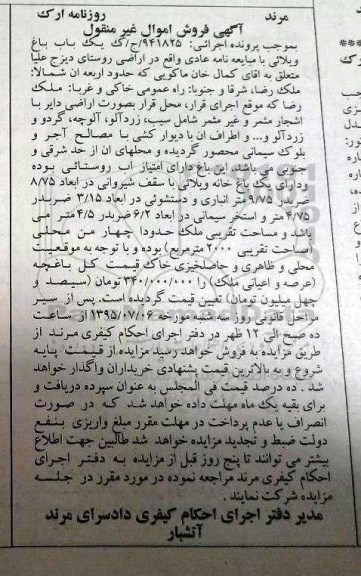 مرند روزنامه ارک
آگهی فروش اموال غیر منقول
بموجب پرونده اجرائی: ۹۴۱۸۲۵/ج/ک یک باب باغ
ویلائی با مبایعه نامه عادی واقع در اراضی روستای دیزج علیا
متعلق به اقای کمال خان ماکویی که حدود اربعه ان شمالا:
ملک رضا، شرقا و جنوبا: راه عمومی خاکی و غربا: ملک
رضا که موقع اجرای قرار، محل قرار بصورت اراضی دایر با
اشجار مثمر و غیر مثمر شامل سیب، زردآلو، آلوچه، گردو و
زردآلو و... و اطراف ان با دیوار کشی با مصالح آجر و
بلوک سیمانی محصور گردیده و محلهای ان از حد شرقی و
جنوبی می باشد. این باغ دارای امتیاز اب روستائی بوده
ودارای یک باغ خانه ویلائی با سقف شیروانی در ابعاد ۸/۷۵
ضربدر ۹/۷۵متر انباری و دستشوئی در ابعاد ۳/۱۵ ضربدر
۴/۷۵متر و استخر سیمانی در ابعاد ۶/۲ضربدر ۴/۵متر می
باشد و مساحت تقریبی ملک حدودا چهار من محلی
(مساحت تقریبی ۲۰۰۰ مترمربع) بوده و با توجه به موقعیت
محلی و ظاهری و حاصلخیزی خاک قیمت کل باغچه
(عرصه و اعیانی ملک) را ۳۴۰/۰۰۰/۰۰۰ تومان (سیصد و
چهل میلیون تومان) تعیین قیمت گردیده است. پس از سیر
مراحل قانونی روز سه شنبه مورخه ۱۳۹۵/۰۷/۰۶ از ساعت
ده صبح الی ۱۲ ظهر در دفتر اجرای احکام کیفری مرند از
طریق مزایده به فروش خواهد رسید مزایده از قیمت پایه
شروع و به بالاترین قیمت پیشنهادی خریداران واگذار خواهد
شد . ده درصد قیمت فی المجلس به عنوان سپرده دریافت و
برای بقیه یک ماه مهلت داده خواهد شد که در صورت
انصراف یا عدم پرداخت در مهلت مقرر مبلغ واریزی بنفع
دولت ضبط و تجدید مزایده خواهد شد طالبین جهت اطلاع
بیشتر می توانند تا پنج روز قبل از مزایده به دفتر اجرای
احکام کیفری مرند مراجعه نموده در مورد مقرر در جلسه
مزایده شرکت نمایند .
مدیر دفتر اجرای احکام کیفری دادسرای مرند
آتشبار